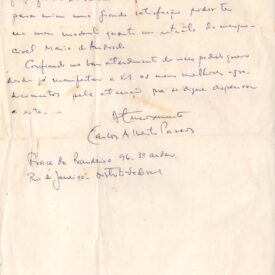 para mim uma grande satisfação poder ter
em meu modesto quarto um retrato do inesque-
cível Mario de Andrade.
Confiando no bom atendimento do meu pedido, quero
desde já manifestar a VS os meus melhores agra-
decimentos pela atenção que se digne dispensar
a esta.
Atenciosamente
Carlos Alberto Passos
Praça da Bandeira 96. 3º andar
Rio de Janeiro - Distrito Federal